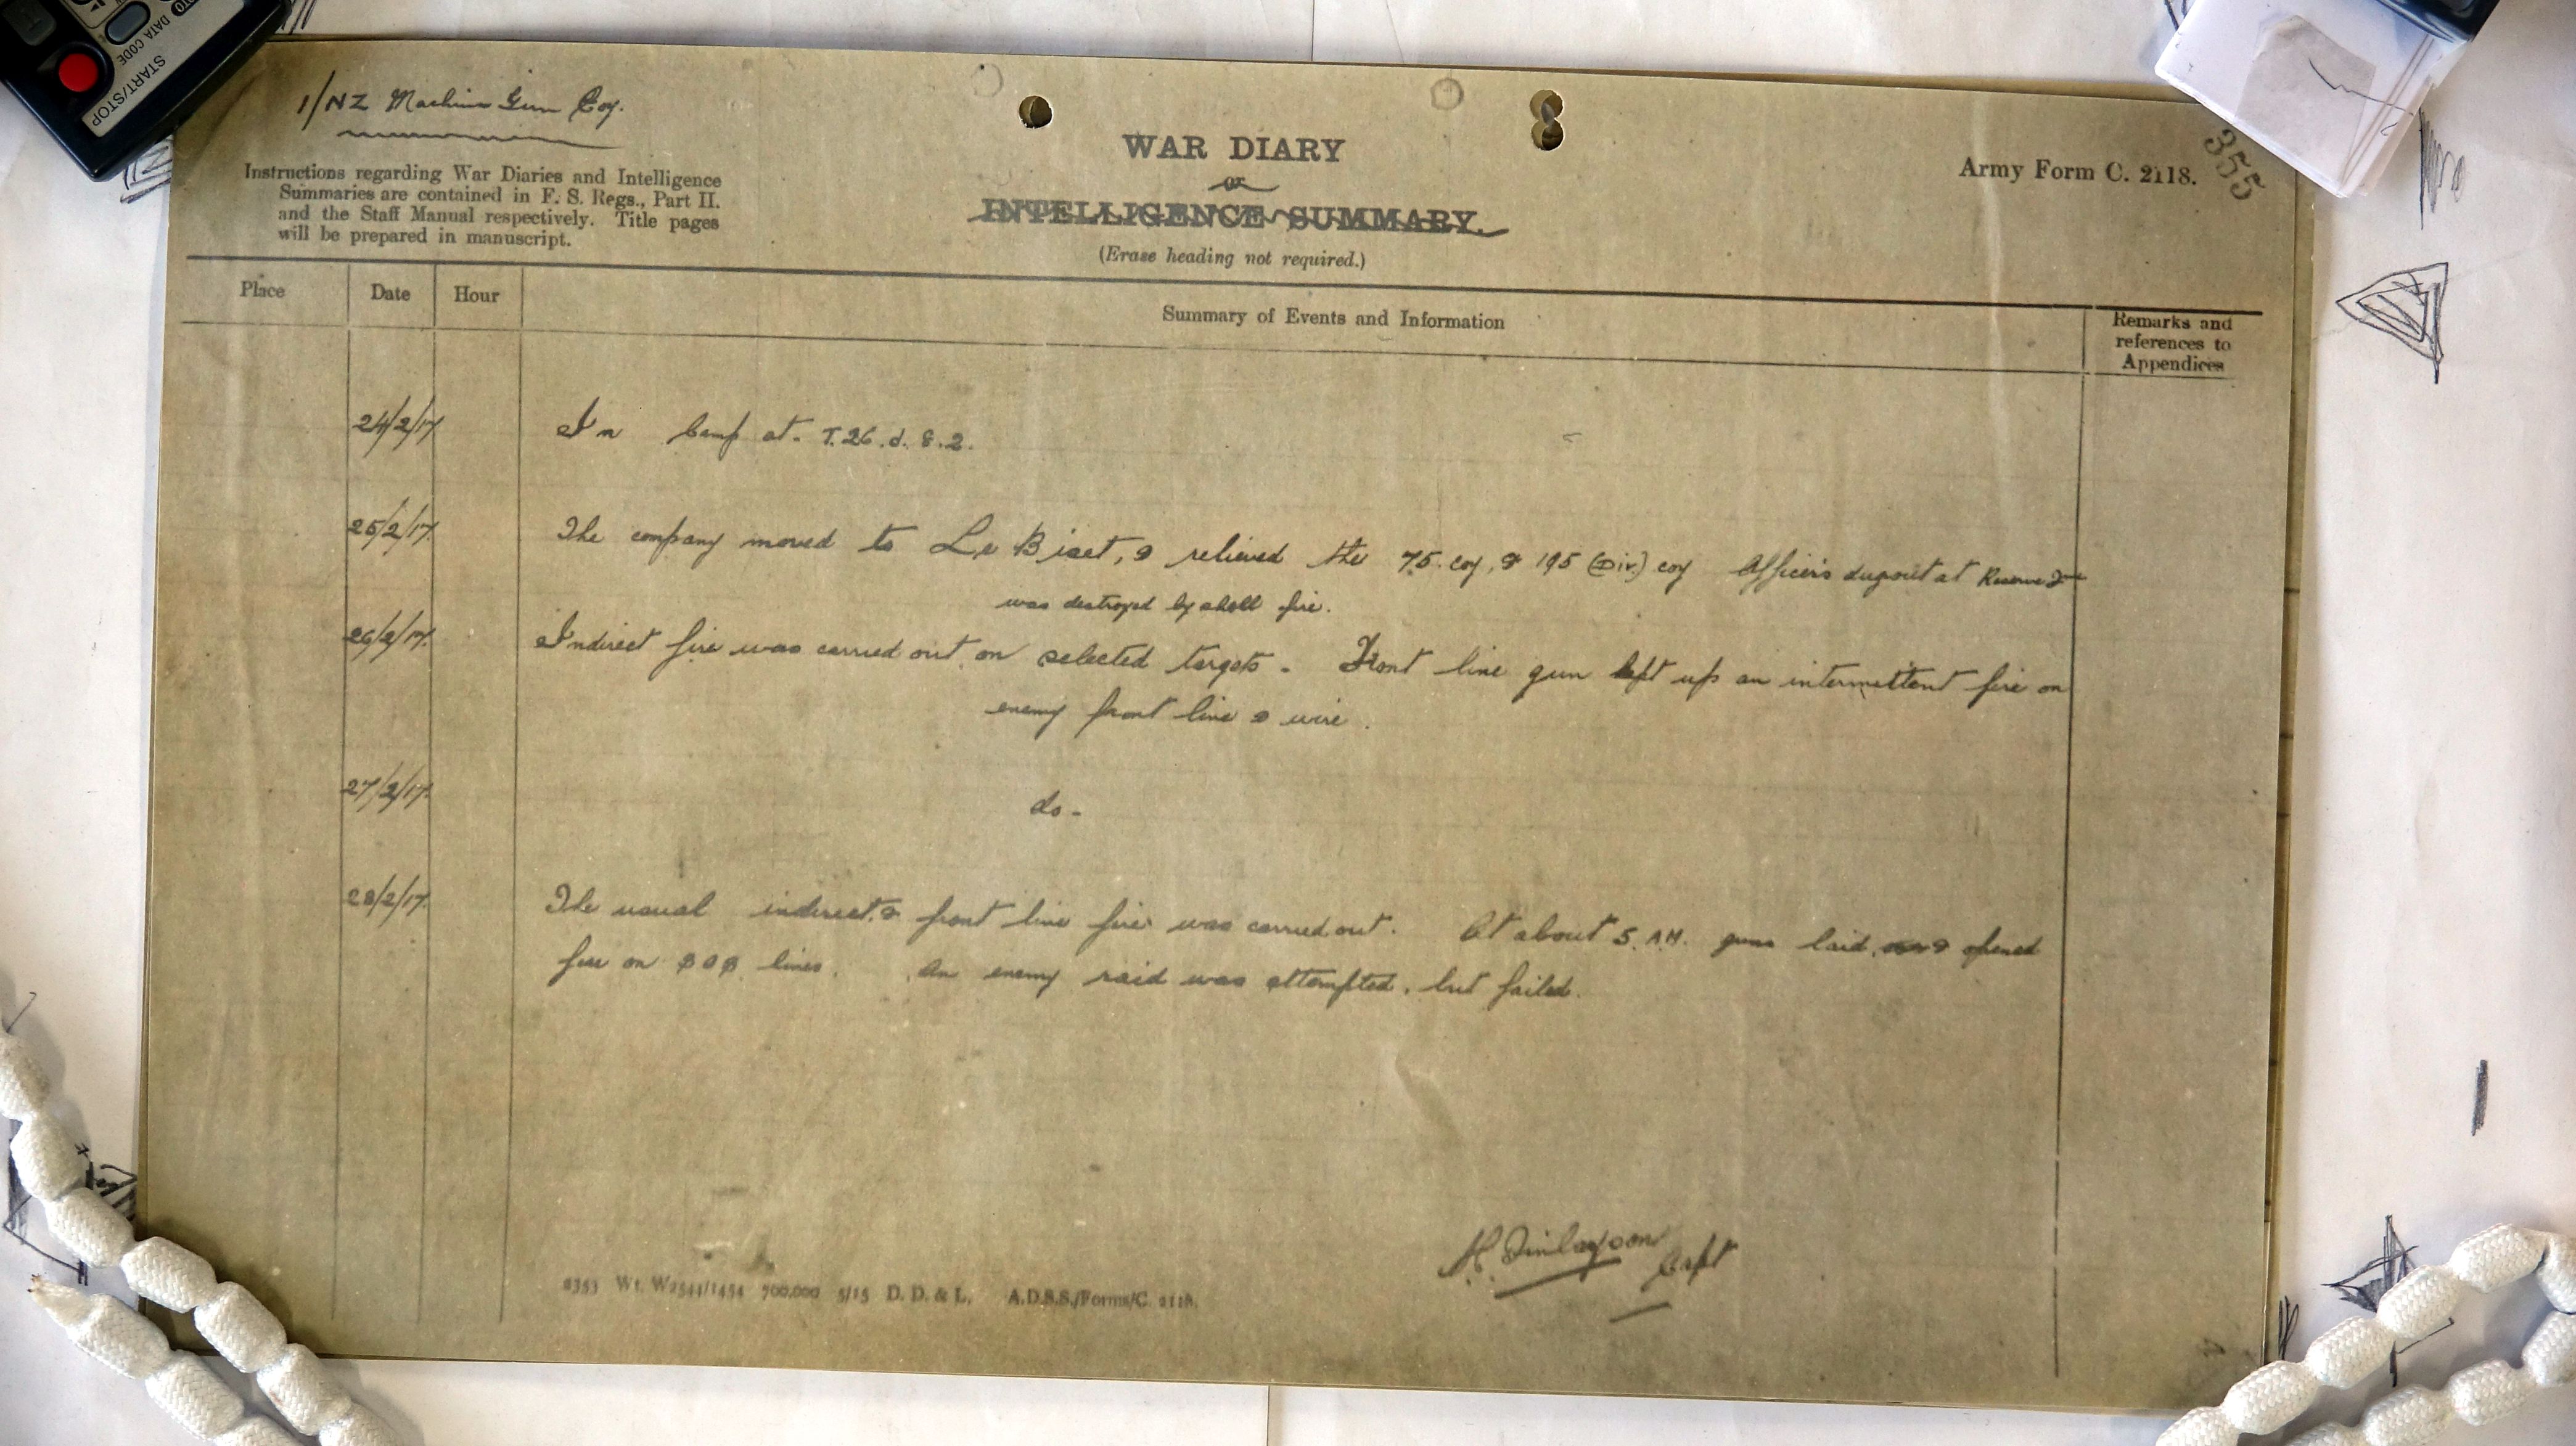 START/STOP
DATA CODE
1/NZ Machine Gun Coy.
355
WAR DIARY
or
INTELLIGENCE SUMMARY.
(Erase heading not required.)
Army Form C. 2118.
Instructions regarding War Diaries and Intelligence
Summaries are contained in F. S. Regs., Part II.
and the Staff Manual respectively. Title pages
will be prepared in manuscript.
Place Date Hour Summary of Events and Information Remarks and
references to
Appendices
24/2/17 In Camp at. T.26.d.8.2.
25/2/17. The company moved to Le Biset, & relieved the 75. coy, & 195 (Div.) coy Officers dugout at Reserve
was destroyed by shell fire.
26/2/17. Indirect fire was carried out, on selected targets. Front line gun kept up an intermittent fire on
enemy front line & wire.
27/2/17. do-
28/2/17. The usual indirect & front line fire was carried out. At about 5. AM. guns laid, & opened
fire on SOS lines. An enemy raid was attempted, but failed.
H. Finlayson Capt
2353 Wt. W2544/1454 700,000 5/15 D. D. & L. A.D.S.S./Forms/C. 2118.